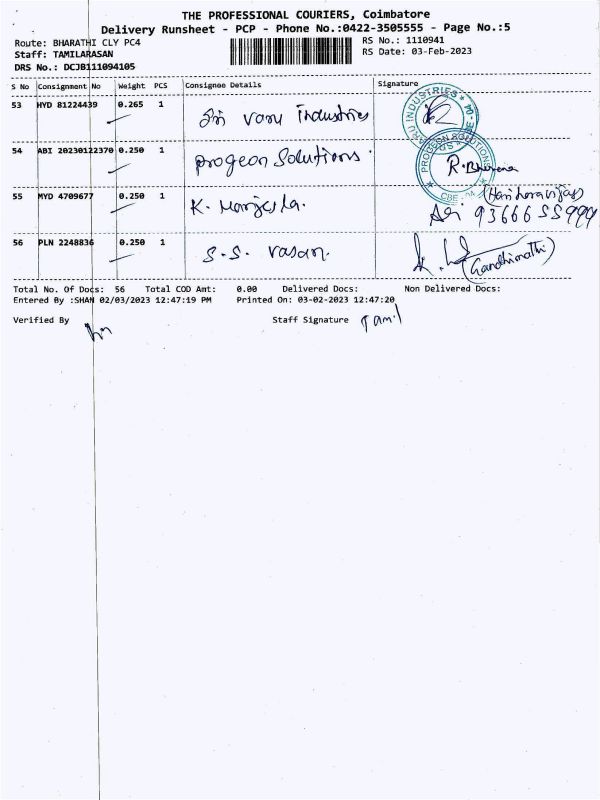 THE PROFESSIONAL COURIERS, Coimbatore
Delivery Runsheet - PCP - Phone No.:0422-3505555 - Page No.:5
Route: BHARATHI CLY PC4
RS No.: 1110941
Staff: TAMILARASAN
RS Date: 03-Feb-2023
DRS No.: DCJB111094105
S No Consignment No Weight PCS Consignee Details Signature
53 HYD 81224439 0.265 1 Sri Varu Industries
54 ABI 20230122370 0.250 1 Progeon Solutions. R.Bhuvana
PROGEON SOLUTIONS
55 MYD 4709677 0.250 1 K. Manjula. 9366655999
56 PLN 2248836 0.250 1 S.S. Vasan. (Gandhimathi)
Total No. Of Docs: 56 Total COD Amt: 0.00 Delivered Docs: Non Delivered Docs:
Entered By :SHAN 02/03/2023 12:47:19 PM Printed On: 03-02-2023 12:47:20
Verified By Staff Signature Tamil